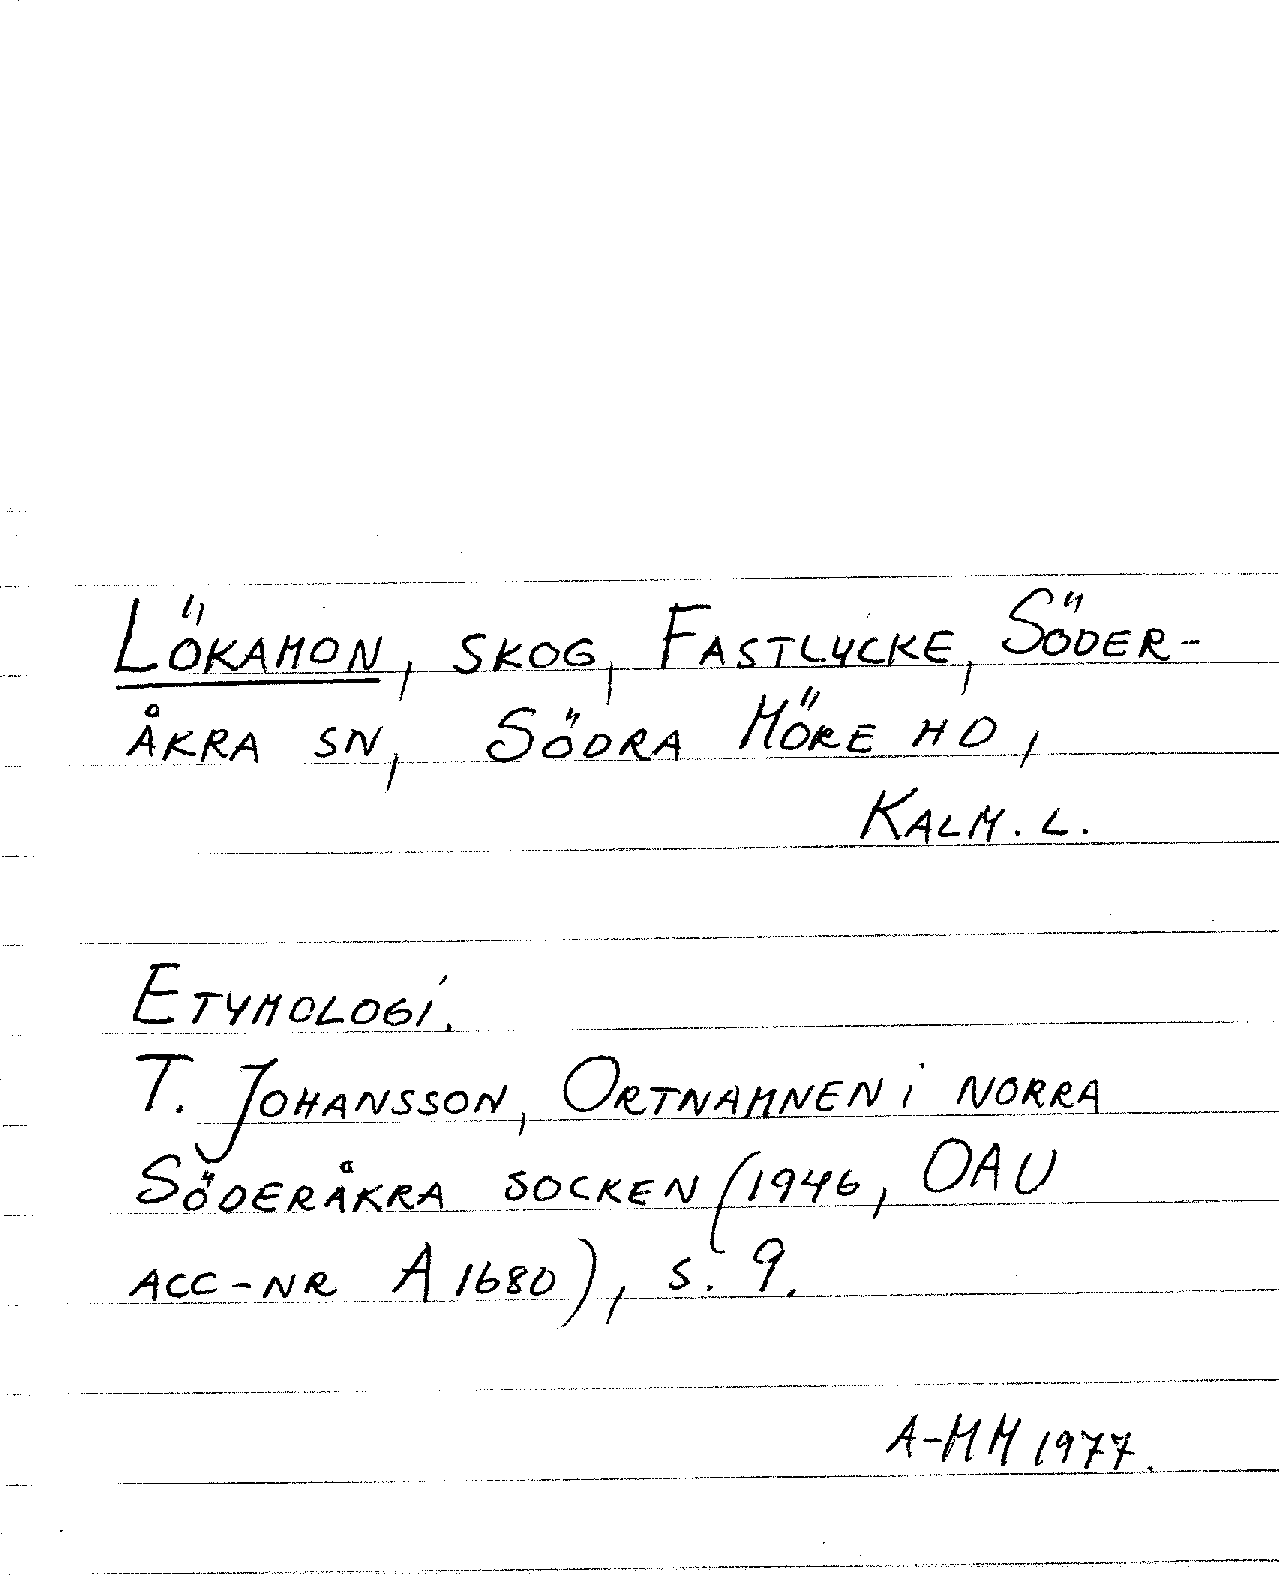 LÖKAMON, SKOG, FASTLYCKE, SÖDER-
ÅKRA SN, SÖDRA MÖRE HD,
KALM. L.
ETYMOLOGI.
T. JOHANSSON, ORTNAMNEN i NORRA
SÖDERÅKRA SOCKEN (1946, OAU
ACC-NR A 1680), S. 9.
A-MM 1977.